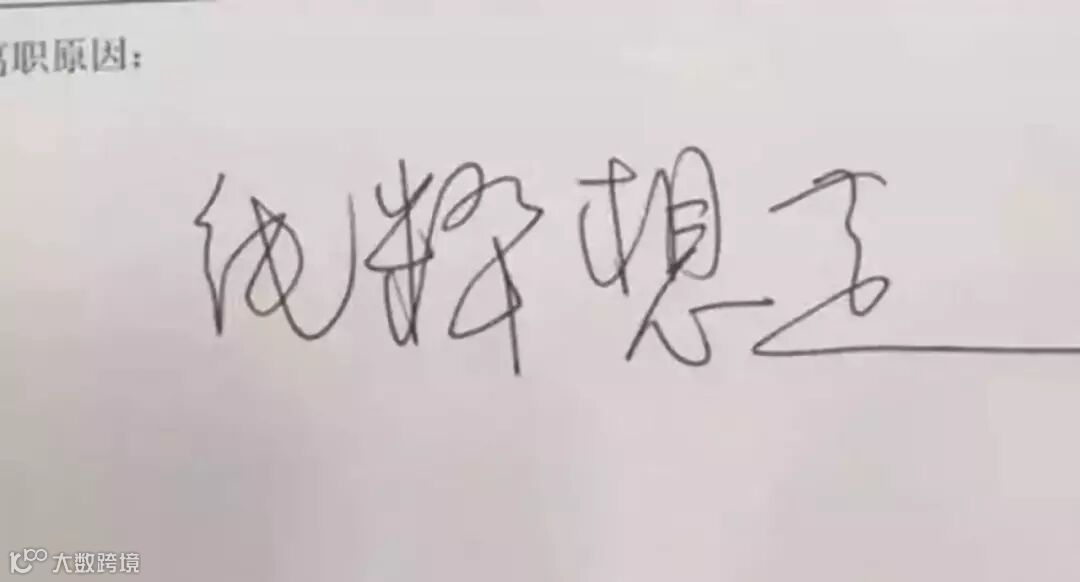 离职原因:
纯粹想走
100 大数跨境